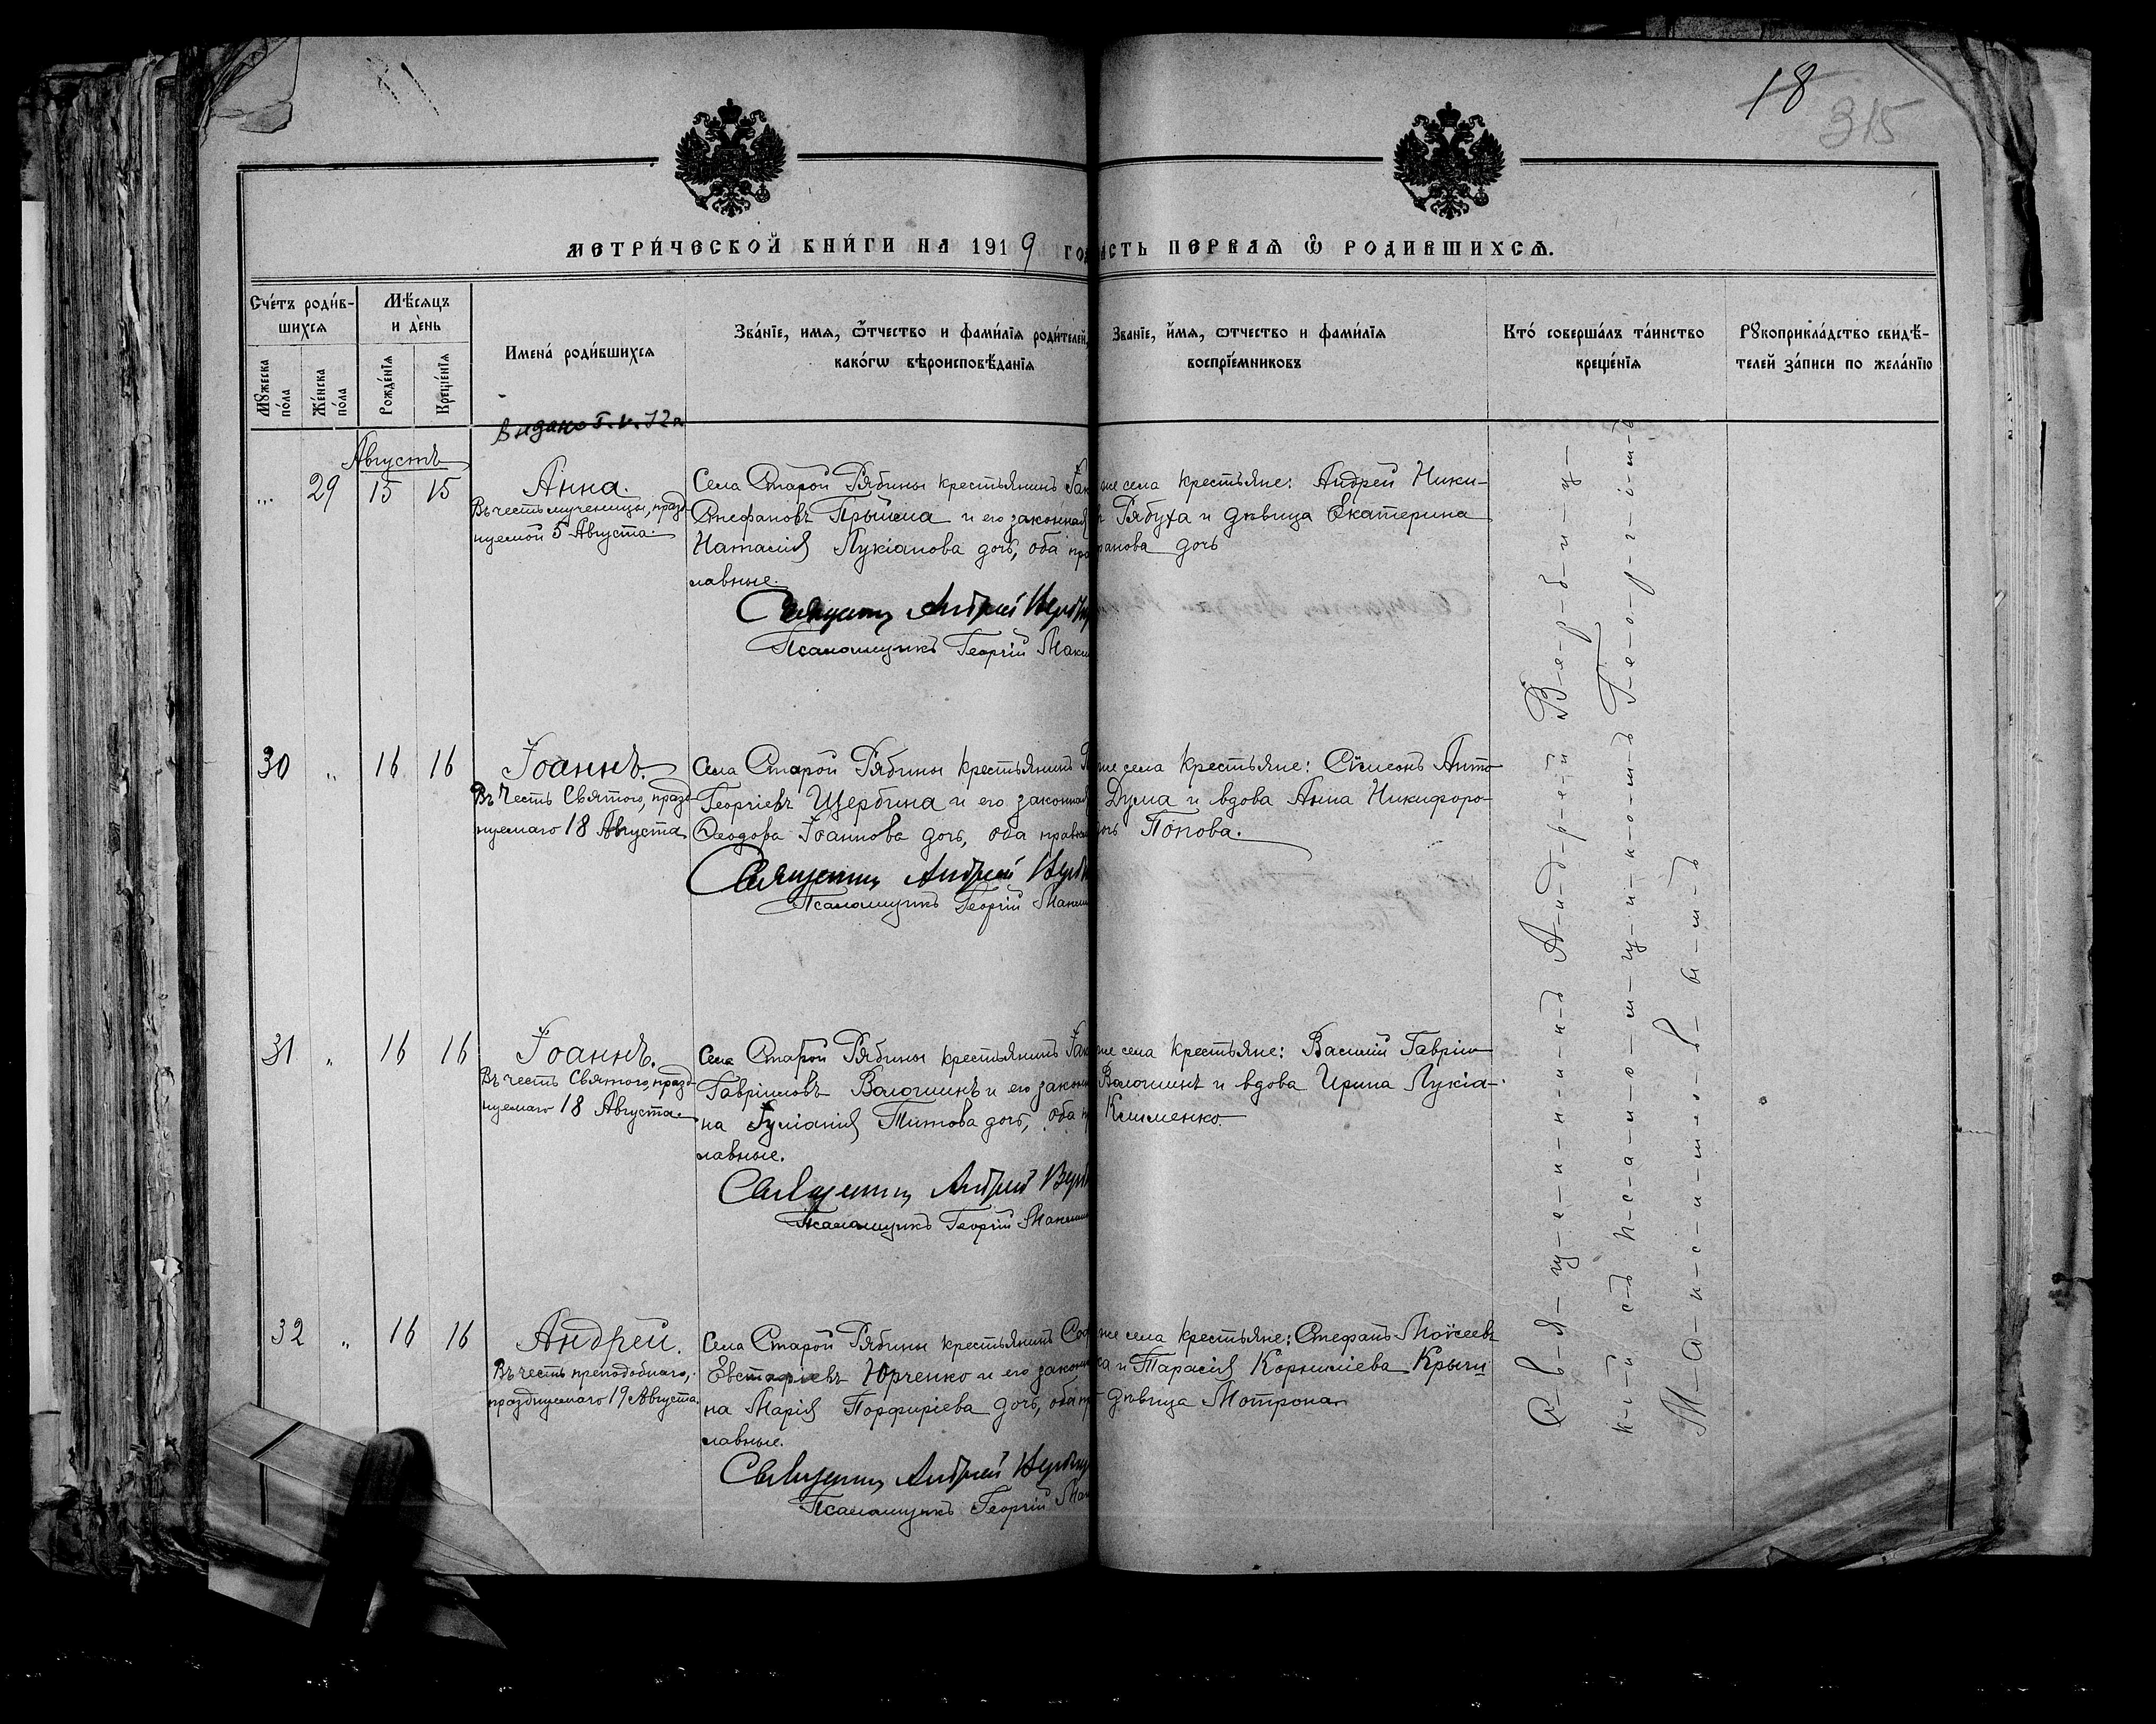 18
315
МЕТРИЧЕСКОЙ КНИГИ НА 1919 ГО
АСТЬ ПЕРВАЯ Ѿ РОДИВШИХСЯ.
Счетъ родив-
шихся
Мужеска
пола
Женска
пола
Мѣсяцъ
и день
Рожденія
Крещенія
Имена родившихся
Званіе, имя, ѻтчество и фамилія родителей,
какогѡ вѣроисповѣданія
Званіе, имя, ѻтчество и фамилія
воспріемниковъ
Кто совершалъ таинство
крещенія
Рукоприкладство свидѣ-
телей записи по желанію
Августъ
29 15 15
Анна.
Въ честь мученицы, празд-
нуемой 5 Августа.
Села Старой Рябины крестьянинъ
Стефановъ Прыйма и его законная
Наталія Лукіанова дочь, оба пра
лавные.
Священник Андрей Верби
Псаломщикъ Георгій Макси
же села крестьяне: Андрей Ники-
Рябуха и дѣвица Екатерина
дочь
30 " 16 16
Іоаннъ.
Въ Честь Святого, празд-
нуемаго 18 Августа
Села Старой Рябины крестьянинъ
Георгіевъ Щербина и его законная
Ѳеодора Іоаннова дочь, оба правос
Священник Андрей Верб
Псаломщикъ Георгій Макси
же села крестьяне: Сѵмеонъ Анто
Дума и вдова Анна Никифоро-
Попова.
31 " 16 16
Іоаннъ.
Въ честь Святого, празд-
нуемаго 18 Августа.
Села Старой Рябины крестьянинъ
Гавріиловъ Волошинъ и его закон
на Іуліанія Титова дочь, оба
лавные.
Священник Андрей Верб
Псаломщикъ Георгій Макси
же села крестьяне: Василій Гавріил
Волошинъ и вдова Ирина Лукіа-
Клименко.
32 " 16 16
Андрей.
Въ честь преподобнаго,
празднуемаго 19 Августа.
Села Старой Рябины крестьянинъ
Евстафіевъ Юрченко и его закон
на Марія Порфиріева дочь, оба пр
лавные.
Священник Андрей Верби
Псаломщикъ Георгій Мак
же села крестьяне: Стефанъ Моѵсеевъ
и Тарасія Корниліева
дѣвица Мотрона
С-в-я-щ-е-н-н-и-к-ъ А-н-д-р-е-й В-е-р-б-и-ц-
к-і-й с-ъ п-с-а-л-о-м-щ-и-к-о-м-ъ Г-е-о-р-г-і-е-м-ъ
М-а-к-с-и-м-о-в-